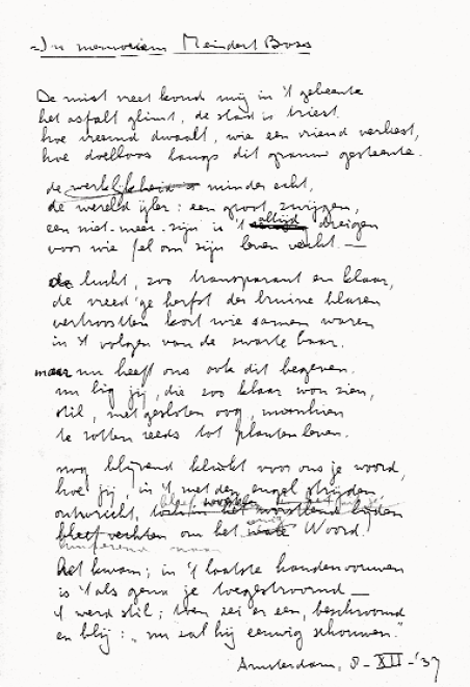 In memoriam Meindert Boss
De mist vreet koud mij in 't gebeente
het asfalt glimt, de stad is triest.
hoe vreemd dwaalt, wie een vriend verliest,
hoe doelloos langs dit grauw gesteente.
de werklijkheid is minder echt,
de wereld ijler: een groot zwijgen,
een niet-meer-zijn is 't altijd dreigen
voor wie fel om zijn leven vecht. —
de lucht, zoo transparant en klaar,
de vreed'ge herfst der bruine blaren
vertroostten kort wie samen waren
in 't volgen van de zwarte baar.
maar nu heeft ons ook dit begeven.
nu lig jij, die zoo klaar kon zien,
stil, met gesloten oog, misschien
te rotten reeds tot plantenleven.
nog blijvend klinkt voor ons je woord,
hoe jij, in 't met den engel strijden
ontwricht, worstlend lijden
bleef vechten om het Woord.
naar
Het kwam; in 't laatste handenvouwen
is 't als genâ je toegestroomd —
't werd stil; toen zei er een, beschroomd
en blij: „nu zal hij eeuwig schouwen."
Amsterdam, 8-XII-'37